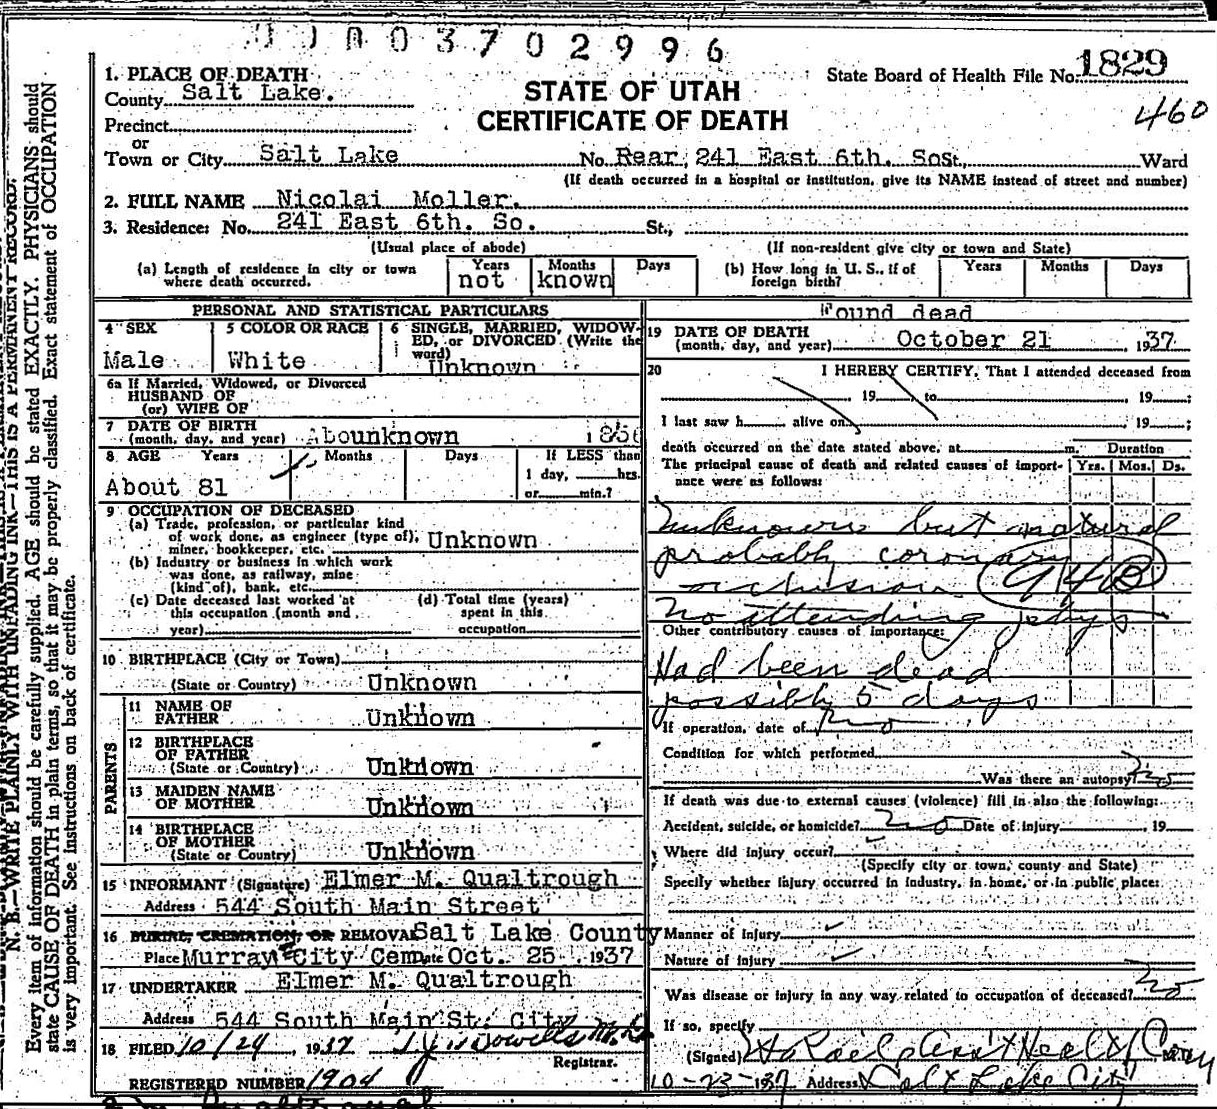 0 0 0 3 7 0 2 9 9 6
State Board of Health File No. 1829
460
STATE OF UTAH
CERTIFICATE OF DEATH
1. PLACE OF DEATH
County Salt Lake.
Precinct
or
Town or City Salt Lake No. Rear 241 East 6th. So. St., Ward
(If death occurred in a hospital or institution, give its NAME instead of street and number)
2. FULL NAME Nicolai Moller.
3. Residence: No. 241 East 6th. So. St.,
(Usual place of abode) (If non-resident give city or town and State)
(a) Length of residence in city or town where death occurred. Years not Months known Days
(b) How long in U. S., if of foreign birth? Years Months Days
PERSONAL AND STATISTICAL PARTICULARS
4 SEX Male
5 COLOR OR RACE White
6 SINGLE, MARRIED, WIDOWED, or DIVORCED (Write the word) Unknown
6a If Married, Widowed, or Divorced
HUSBAND OF
(or) WIFE OF
7 DATE OF BIRTH
(month, day, and year) Abounknown 1856
8 AGE Years Months Days If LESS than
1 day, hrs.
About 81 or min.?
9 OCCUPATION OF DECEASED
(a) Trade, profession, or particular kind
of work done, as engineer (type of), Unknown
miner, bookkeeper, etc.
(b) Industry or business in which work
was done, as railway, mine
(kind of), bank, etc.
(c) Date deceased last worked at
this occupation (month and
year)
(d) Total time (years)
spent in this
occupation
10 BIRTHPLACE (City or Town)
(State or Country) Unknown
PARENTS
11 NAME OF
FATHER Unknown
12 BIRTHPLACE
OF FATHER
(State or Country) Unknown
13 MAIDEN NAME
OF MOTHER Unknown
14 BIRTHPLACE
OF MOTHER
(State or Country) Unknown
15 INFORMANT (Signature) Elmer M. Qualtrough
Address 544 South Main Street
16 BURIAL, CREMATION, OR REMOVAL Salt Lake County
Place Murray City Cem Date Oct. 25 1937
17 UNDERTAKER Elmer M. Qualtrough
Address 544 South Main St. City
18 FILED 10/24, 1937 M.D.
Registrar.
REGISTERED NUMBER 1904
Found dead
19 DATE OF DEATH
(month, day, and year) October 21 1937
20 I HEREBY CERTIFY, That I attended deceased from
19 to , 19 ;
I last saw h alive on , 19 ;
death occurred on the date stated above, at m. Duration
The principal cause of death and related causes of importance were as follows: Yrs. Mos. Ds.
Unknown but natural
probably coronary
occlusion 94B
No attending phys
Other contributory causes of importance:
Had been dead
possibly 5 days
If operation, date of no
Condition for which performed
Was there an autopsy? no
If death was due to external causes (violence) fill in also the following:
Accident, suicide, or homicide? no Date of injury , 19
Where did injury occur?
(Specify city or town, county and State)
Specify whether injury occurred in industry, in home, or in public place:
Manner of injury
Nature of injury
Was disease or injury in any way related to occupation of deceased? no
If so, specify
(Signed) Health Com
10-23-1937 Address Salt Lake City
N. B.—WRITE PLAINLY WITH UNFADING INK—THIS IS A PERMANENT RECORD.
Every item of information should be carefully supplied. AGE should be stated EXACTLY. PHYSICIANS should
state CAUSE OF DEATH in plain terms, so that it may be properly classified. Exact statement of OCCUPATION
is very important. See Instructions on back of certificate.